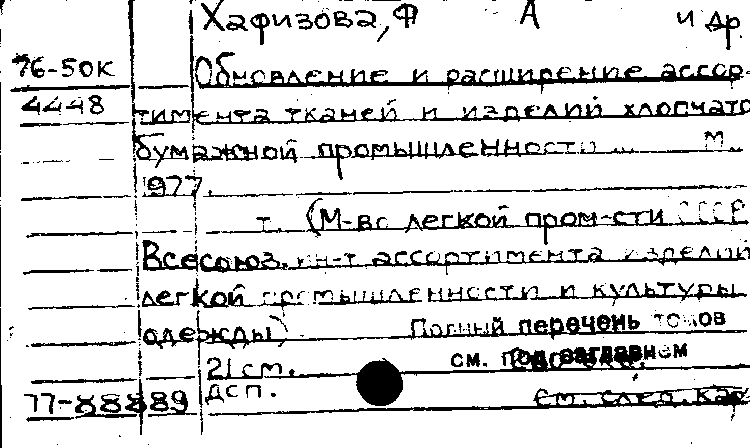 Хафизова, Ф А и др.
76-50К Обновление и расширение ассор-
4448 тимента тканей и изделий хлопчато
бумажной промышленности ... М.,
1977.
т. (М-во легкой пром-сти СССР
Всесоюз. ин-т ассортимента изделий
легкой промышленности и культуры
одежды)
Полный перечень томов
21 см. см. под заглавием
77-88889 ДСП. См. след. кар